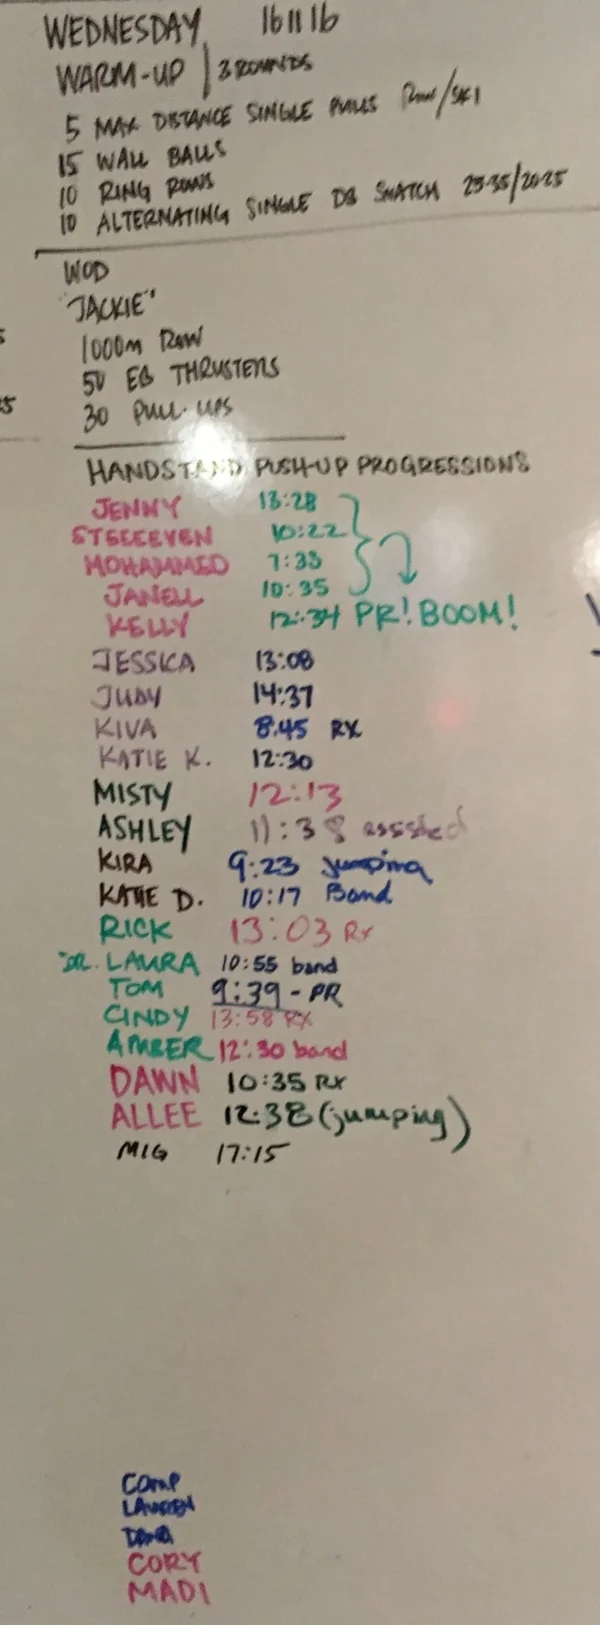 WEDNESDAY 161116
WARM-UP | 3 ROUNDS
5 MAX DISTANCE SINGLE PULLS ROW/SKI
15 WALL BALLS
10 RING ROWS
10 ALTERNATING SINGLE DB SNATCH 25-35/20-25
WOD
"JACKIE"
1000m ROW
50 EB THRUSTERS
30 PULL-UPS
HANDSTAND PUSH-UP PROGRESSIONS
JENNY 13:28
STEEEEVEN 10:22
MOHAMMED 7:33
JANELL 10:35
KELLY 12:34 PR! BOOM!
JESSICA 13:08
JUDY 14:37
KIVA 8:45 RX
KATIE K. 12:30
MISTY 12:13
ASHLEY 11:38 assisted
KIRA 9:23 jumping
KATIE D. 10:17 Band
RICK 13:03 Rx
"DR. LAURA 10:55 band
TOM 9:39 - PR
CINDY 13:58 RX
AMBER 12:30 band
DAWN 10:35 RX
ALLEE 12:38 (jumping)
MIG 17:15
COMP
LAUREN
DANA
CORY
MADI